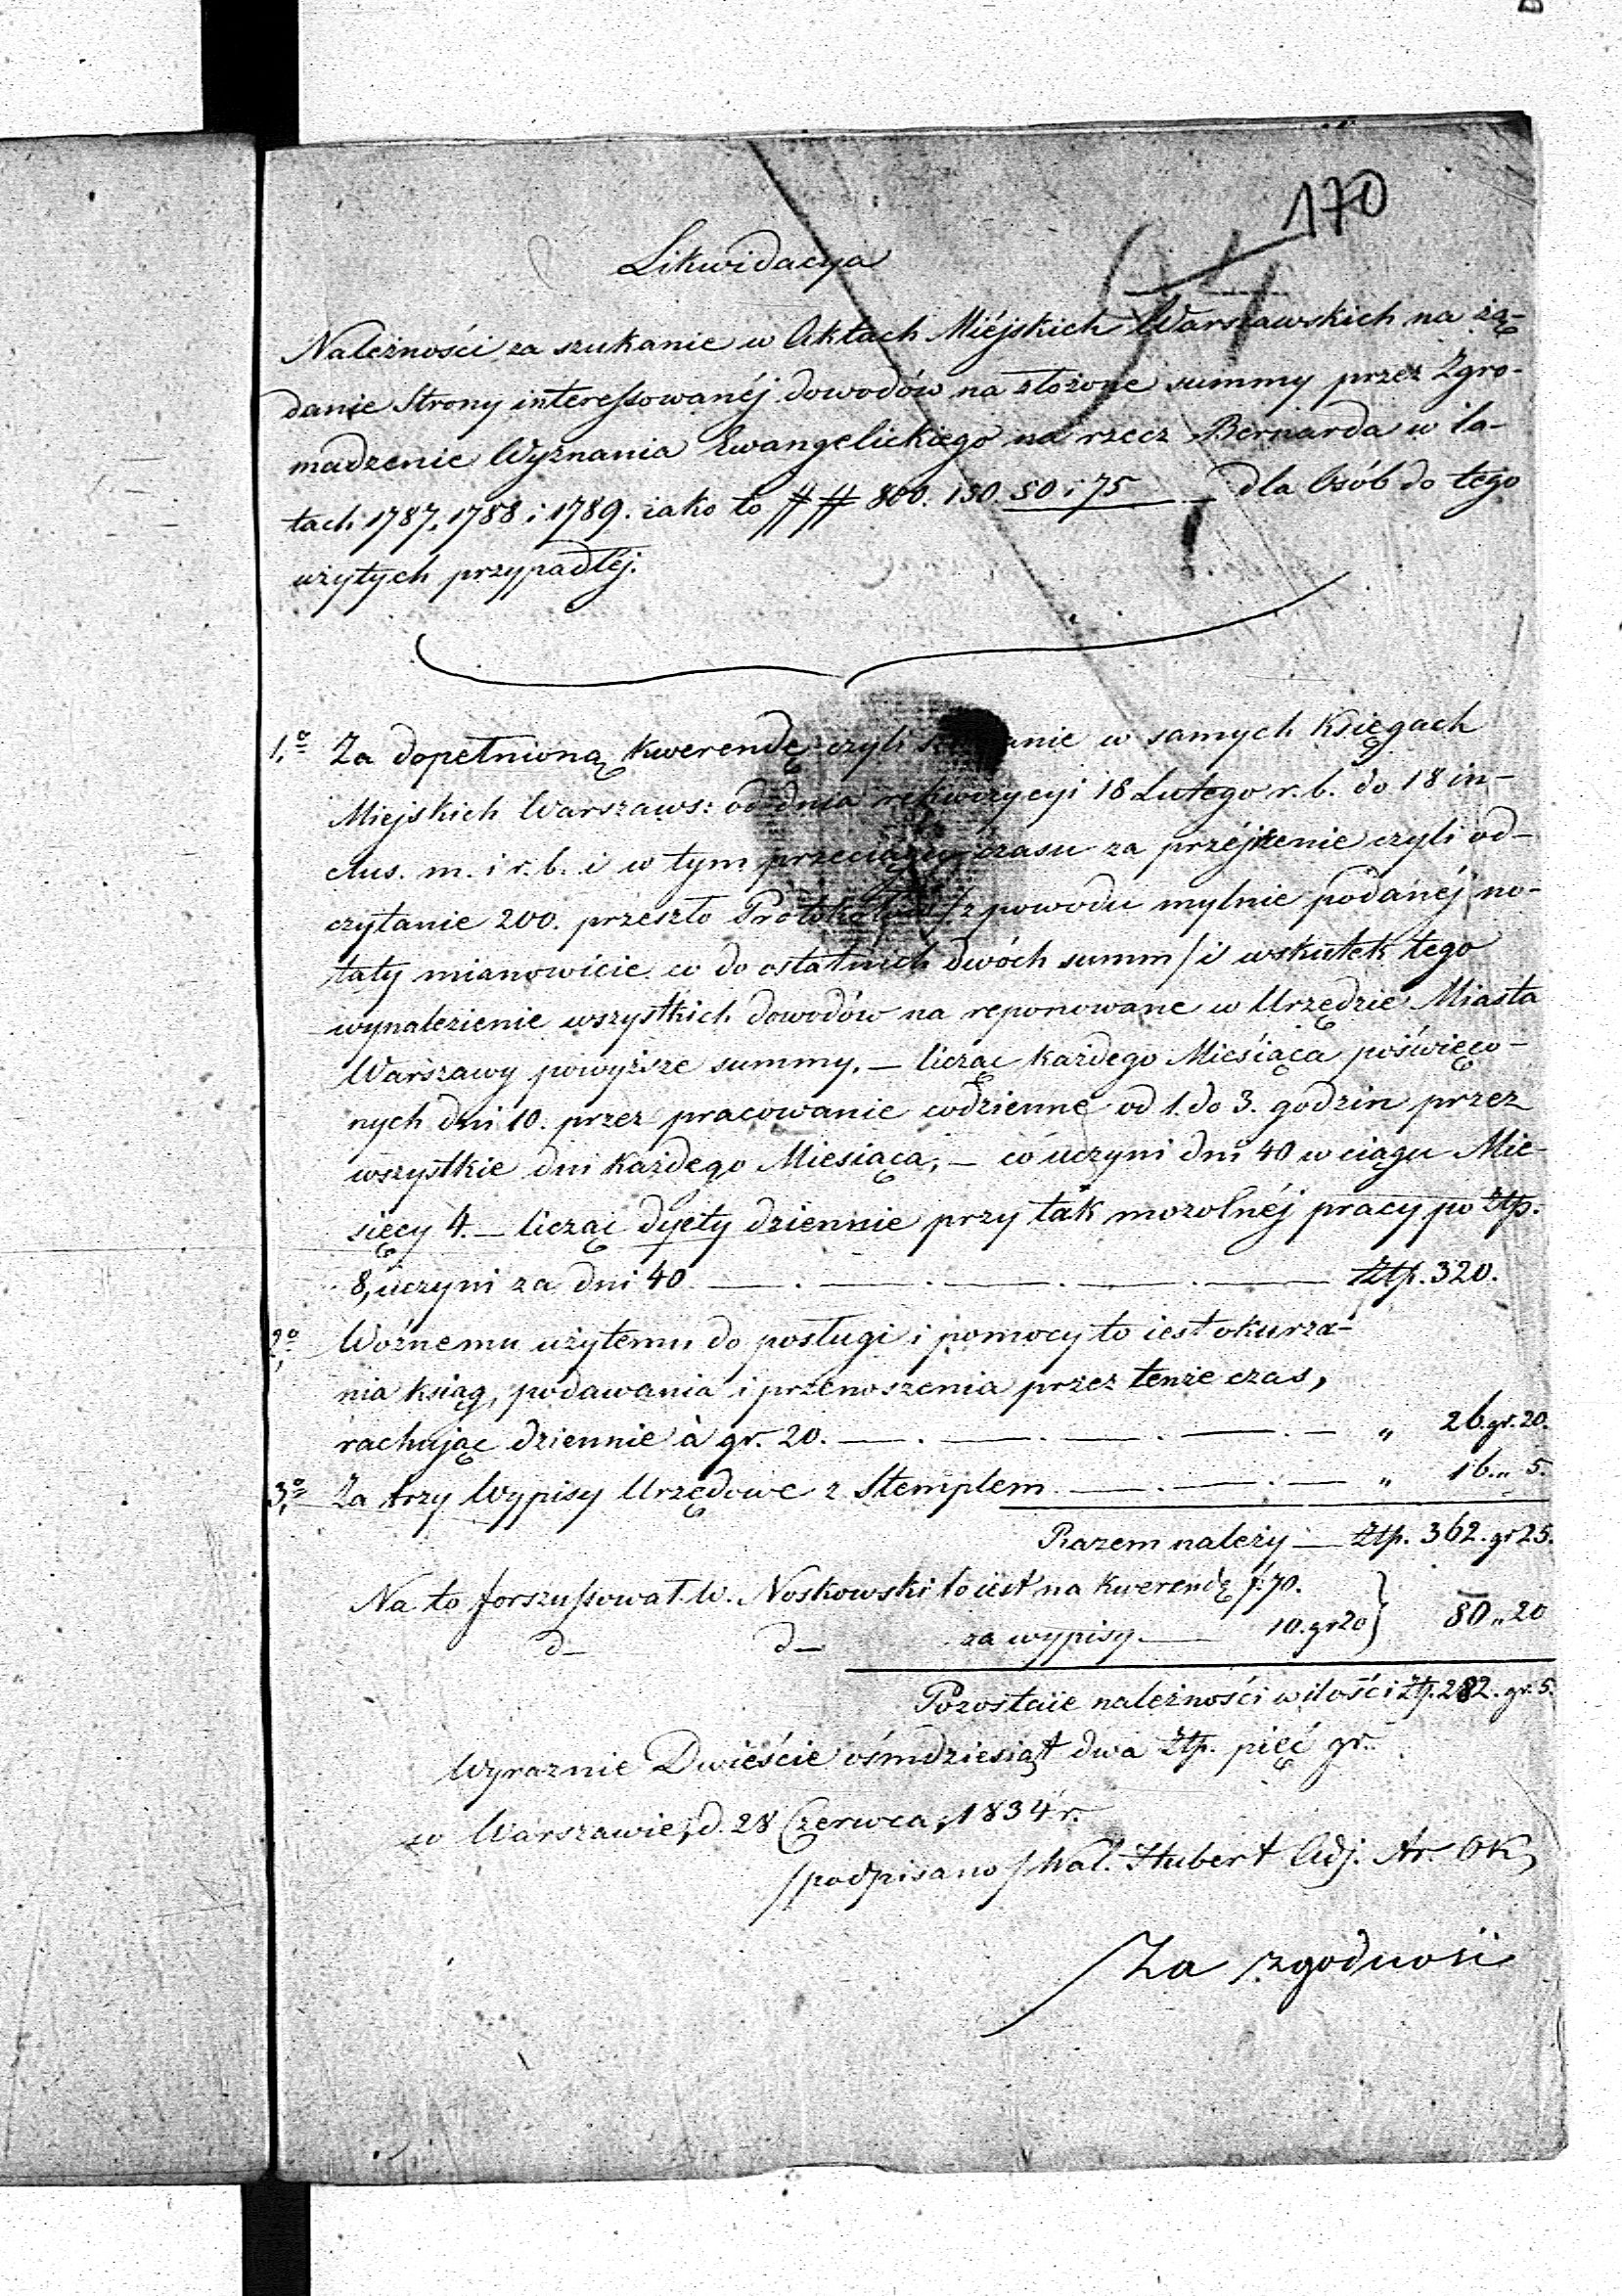 170
Likwidacya
Należności za szukanie w Aktach Miéjskich Warszawskich na żą-
danie Strony interessowanéj dowodów na złożone summy przez Zgro-
madzenie Wyznania Ewangelickiego na rzecz Bernarda w la-
tach 1787, 1788 i 1789. iako to ## 800. 130. 50 i 75 — dla Osób do tego
użytych przypadłéj.
1.o Za dopełnioną kwerendę czyli szukanie w samych Księgach
Miejskich Warszaws: od dnia rekwizycyi 18 Lutego r. b. do 18 in-
clus. m. i r. b. i w tym przeciągu czasu za przéjrzenie czyli od-
czytanie 200. przeszło Protokołów /z powodu mylnie podanéj no-
taty mianowicie co do ostatnich dwóch summ/ i wskutek tego
wynalezienie wszystkich dowodów na reponowane w Urzędzie Miasta
Warszawy powyższe summy. — licząc każdego Miesiąca poświęco-
nych dni 10. przez pracowanie codzienne od 1. do 3. godzin przez
wszystkie dni każdego Miesiąca; — co uczyni dni 40 w ciągu Mie-
sięcy 4. — licząc dyety dziennie przy tak mozolnéj pracy po Złp.
8, uczyni za dni 40 — . — . — . — . — Złp. 320.
2.o Woźnemu użytemu do posługi i pomocy to iest okurza-
nia ksiąg, podawania i przenoszenia przez tenże czas,
rachując dziennie à gr. 20. — . — . — . — . — „ 26. gr. 20.
3.o Za trzy Wypisy Urzędowe z Stemplem — . — . — „ 16. „ 5.
Razem należy — Złp. 362. gr 25.
Na to forszussował W. Noskowski to iest na kwerendę f. 70.
d— d— za wypisy — 10. gr 20 } 80 „ 20
Pozostaie należności w ilości Złp. 282. gr. 5.
Wyraznie Dwieście ośmdziesiąt dwa Złp. pięć gr.
w Warszawie, d. 28 Czerwca, 1834 r.
/podpisano/ Wal. Hubert Adj. Ar. OK
Za zgodność